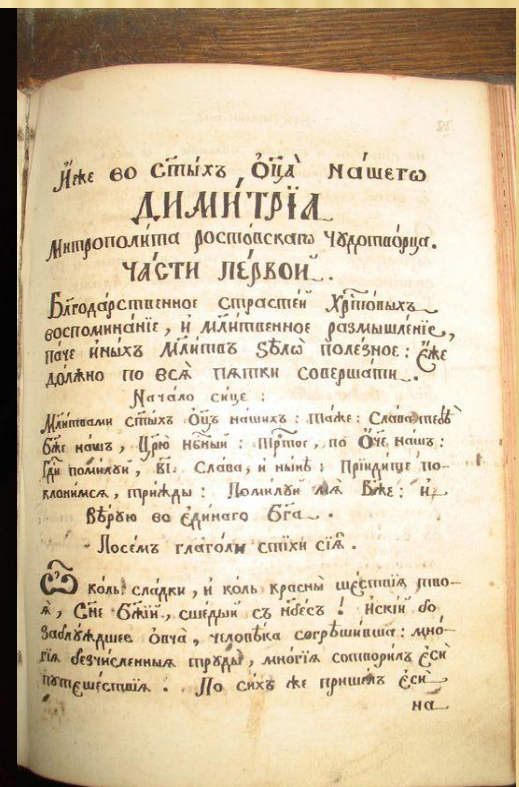 85.
И҆́же во ст҃ы́хъ ѻ҆ц҃а̀ на́шегѡ
ДИМИ́ТРЇѦ
Митрополи́та росто́вскагѡ чꙋдотво́рца.
ЧА́СТИ ПЕ́РВОЙ.
Благода́рственное страсте́й Хрⷭ҇то́выхъ
воспомина́нїе, и҆ мл҃и́твенное размышле́нїе,
па́че и҆ны́хъ мл҃и́твъ ѕѣлѡ̀ поле́зное: є҆́же
до́лжно по всѧ̑ пѧтки̑ соверша́ти.
Нача́ло си́це:
Мл҃и́твами ст҃ы́хъ ѻ҆ц҃ъ на́шихъ: та́же: Сла́ва тебѣ̀
бж҃е на́шъ, Цр҃ю̀ нбⷭ҇ный: трⷭ҇то́е, по Ѻ҆́че на́шъ:
Гдⷭ҇и поми́лꙋй, в҃і. Сла́ва, и҆ ны́нѣ: Прїиди́те по-
клони́мсѧ, три́жды: Поми́лꙋй мѧ̀ Бж҃е: и҆
Вѣ́рꙋю во є҆ди́наго Бг҃а.
Посе́мъ глаго́ли стїхѝ сїѧ̑.
Ѽ ко́ль сла́дки, и҆ ко́ль кра́сны ше́ствїѧ тво-
ѧ̑, Сн҃е Бж҃їй, сше́дый съ нб҃е́съ! И҆скі́й бо
заблꙋ́ждшее ѻ҆вча̀, человѣ́ка согрѣши́вша: мнѡ́-
гїѧ безчи́сленныѧ трꙋды̀, мнѡ́гїѧ сотвори́лъ є҆сѝ
пꙋтеше́ствїѧ. По си́хъ же прише́лъ є҆сѝ
на